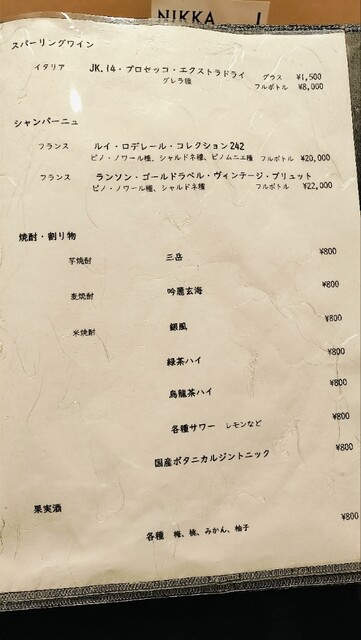 NIKKA
スパーリングワイン
イタリア JK.14・プロセッコ・エクストラドライ グラス ¥1,500
グレラ種 フルボトル ¥8,000
シャンパーニュ
フランス ルイ・ロデレール・コレクション242
ピノ・ノワール種、シャルドネ種、ピノムニエ種 フルボトル ¥20,000
フランス ランソン・ゴールドラベル・ヴィンテージ・ブリュット
ピノ・ノワール種、シャルドネ種 フルボトル ¥22,000
焼酎・割り物
芋焼酎 三岳 ¥800
麦焼酎 吟麗玄海 ¥800
米焼酎 銀風 ¥800
緑茶ハイ ¥800
烏龍茶ハイ ¥800
各種サワー レモンなど ¥800
国産ボタニカルジントニック ¥800
果実酒
各種 梅、桃、みかん、柚子 ¥800